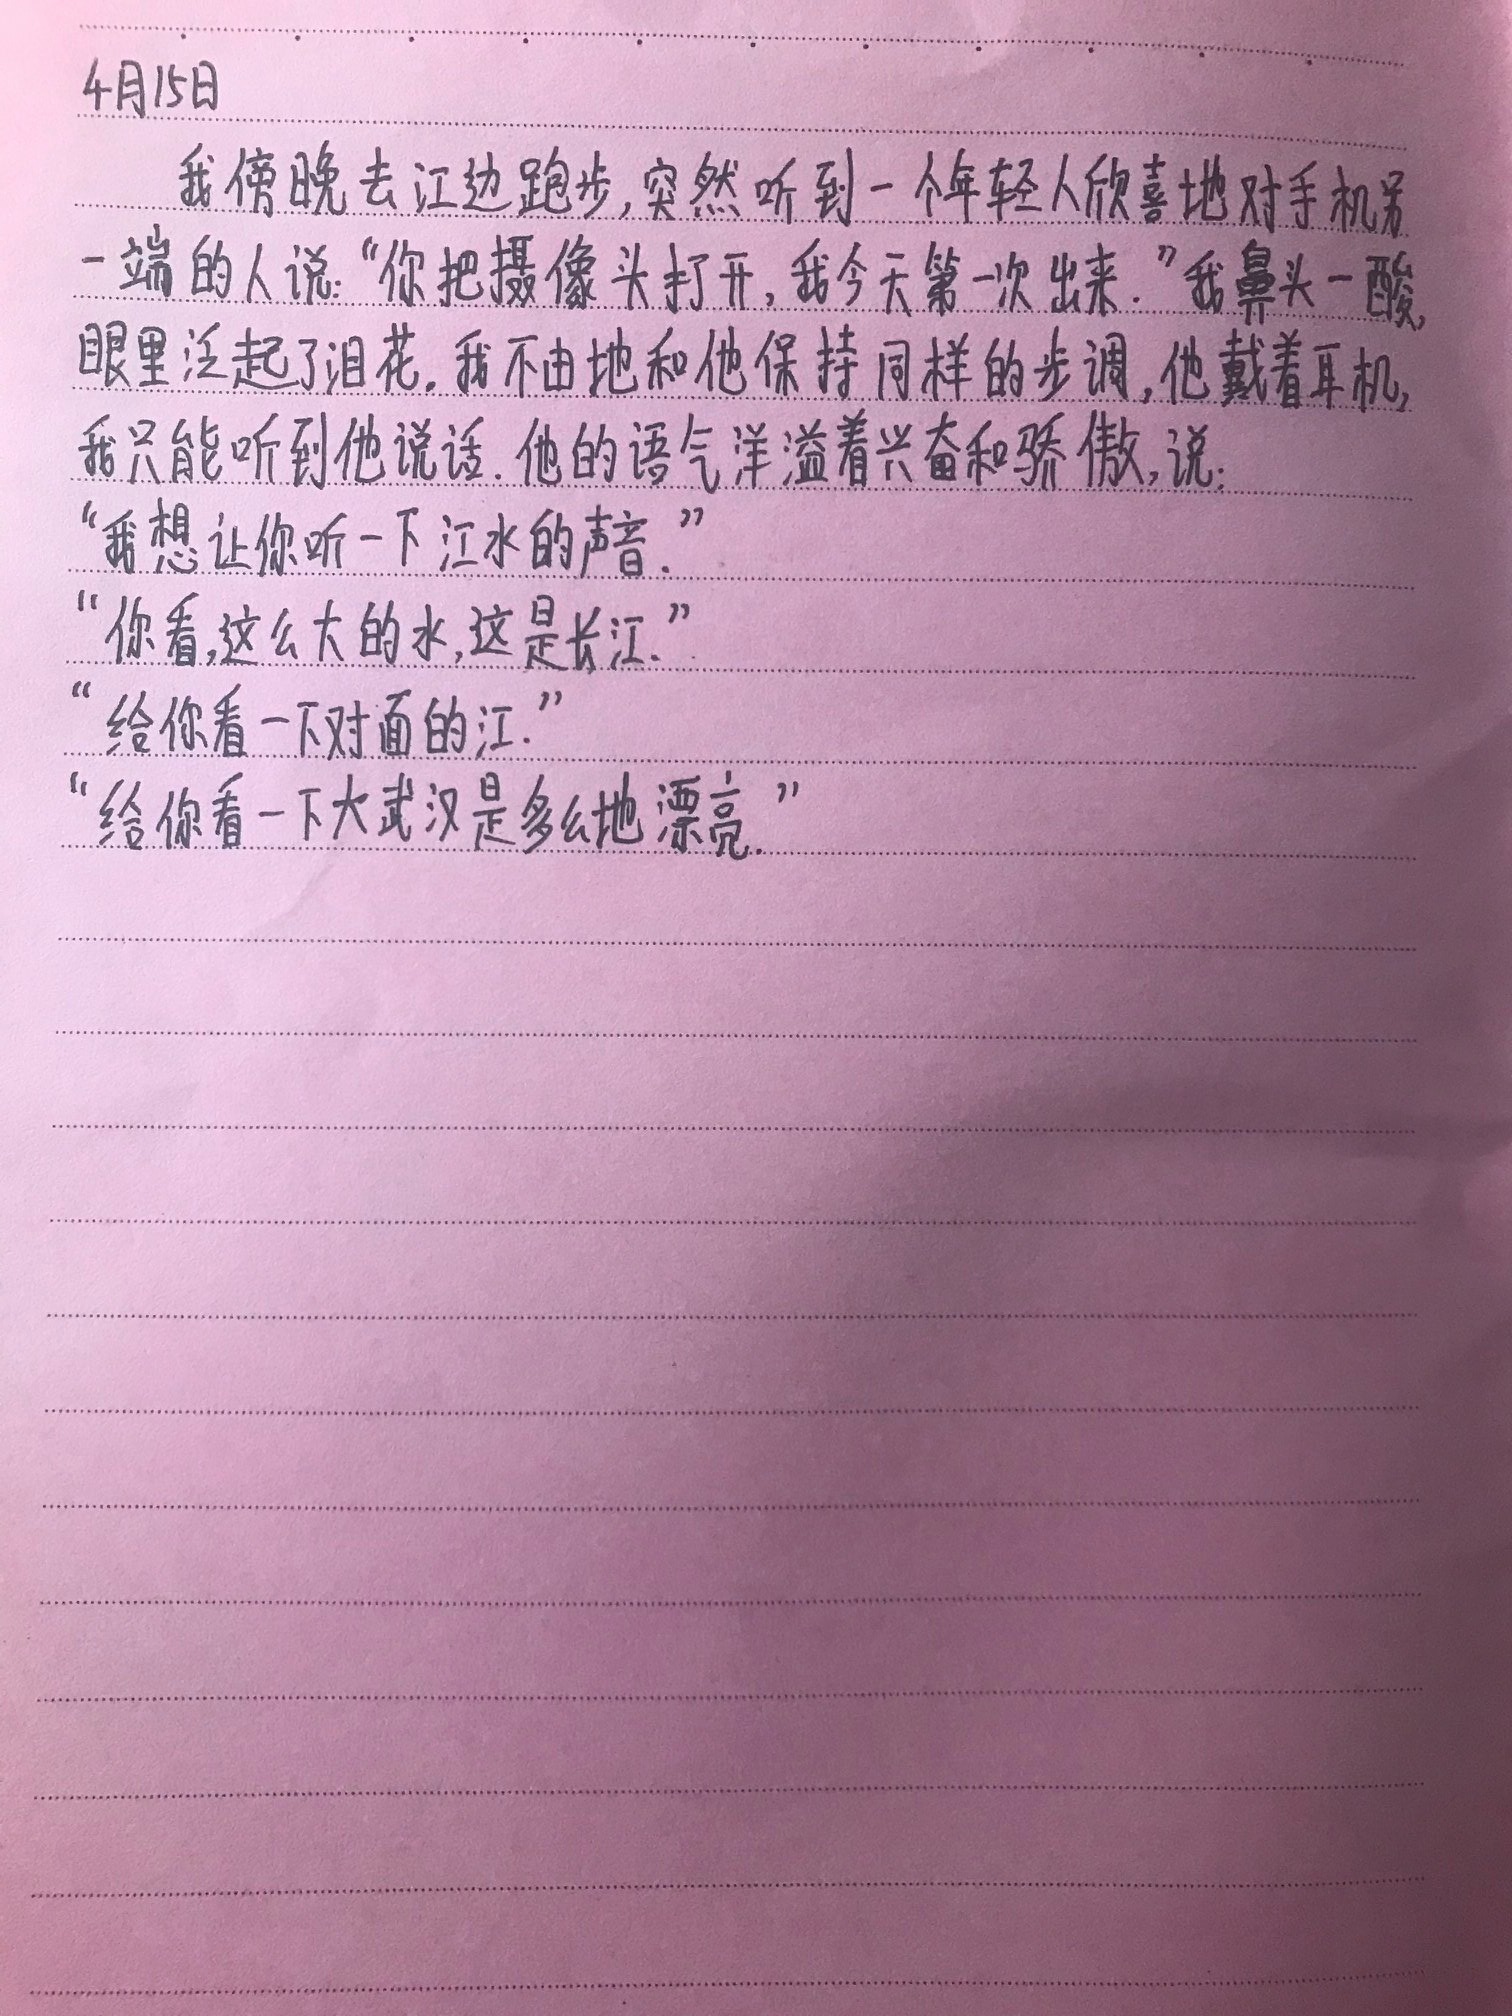 4月15日
我傍晚去江边跑步,突然听到一个年轻人欣喜地对手机另
一端的人说:“你把摄像头打开,我今天第一次出来.”我鼻头一酸,
眼里泛起了泪花.我不由地和他保持同样的步调,他戴着耳机,
我只能听到他说话.他的语气洋溢着兴奋和骄傲,说:
“我想让你听一下江水的声音.”
“你看,这么大的水,这是长江.”
“给你看一下对面的江.”
“给你看一下大武汉是多么地漂亮.”